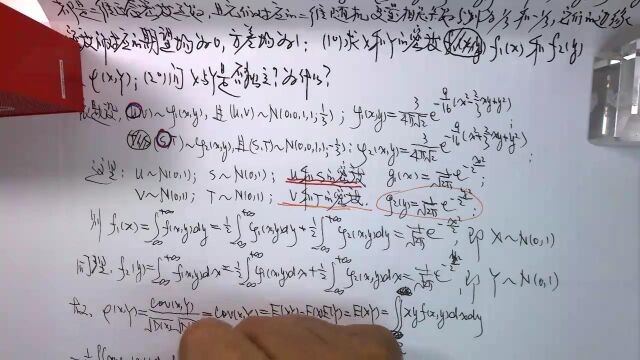 都是二维正态密度函数,且它们对应的二维随机变量相关系数分别为1/3和-1/3,它们的边缘
密度对应的期望都为0,方差都为1; (1°)求X和Y的密度 f₁(x)和f₂(y)
ρ(X,Y); (2°)问X与Y是否独立?为什么?
(U,V)~φ₁(x,y),且(U,V)~N(0,0,1,1,1/3); φ₁(x,y)=3/(4π√2) e^{-9/16(x²-2/3xy+y²)}
(S,T)~φ₂(x,y),且(S,T)~N(0,0,1,1,-1/3); φ₂(x,y)=3/(4π√2) e^{-9/16(x²+2/3xy+y²)};
这里: U~N(0,1); S~N(0,1); U和S的密度 g₁(x)=1/√2π e^{-x²/2};
V~N(0,1); T~N(0,1); V和T的密度 g₂(y)=1/√2π e^{-y²/2};
则 f₁(x)=∫_{-∞}^{+∞} f(x,y)dy=1/2∫_{-∞}^{+∞} φ₁(x,y)dy+1/2∫_{-∞}^{+∞} φ₂(x,y)dy=1/√2π e^{-x²/2}, 即 X~N(0,1)
同理, f₂(y)=∫_{-∞}^{+∞} f(x,y)dx=1/2∫_{-∞}^{+∞} φ₁(x,y)dx+1/2∫_{-∞}^{+∞} φ₂(x,y)dx=1/√2π e^{-y²/2}, 即 Y~N(0,1)
ρ(X,Y)=Cov(X,Y)/√D(X)√D(Y)=Cov(X,Y)=E(XY)-E(X)E(Y)=E(XY)=∬xyf(x,y)dxdy